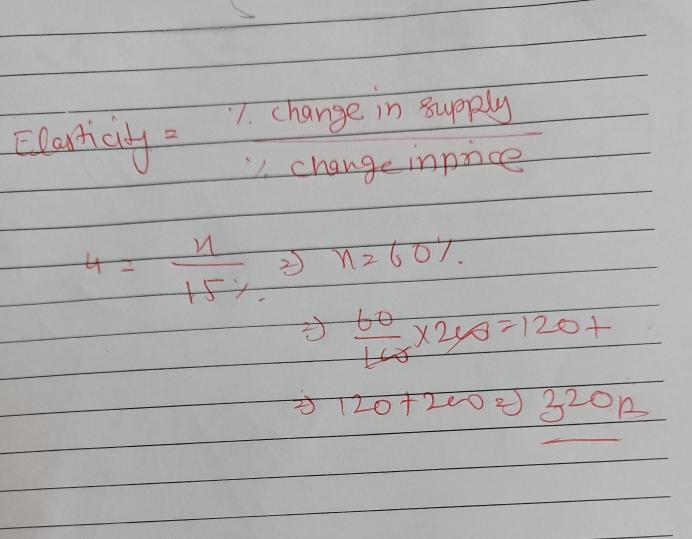 Elasticity = % change in supply
% change in price
4 = x / 15% ⇒ x = 60%.
⇒ 60/100 × 200 = 120+
⇒ 120 + 200 ⇒ 320